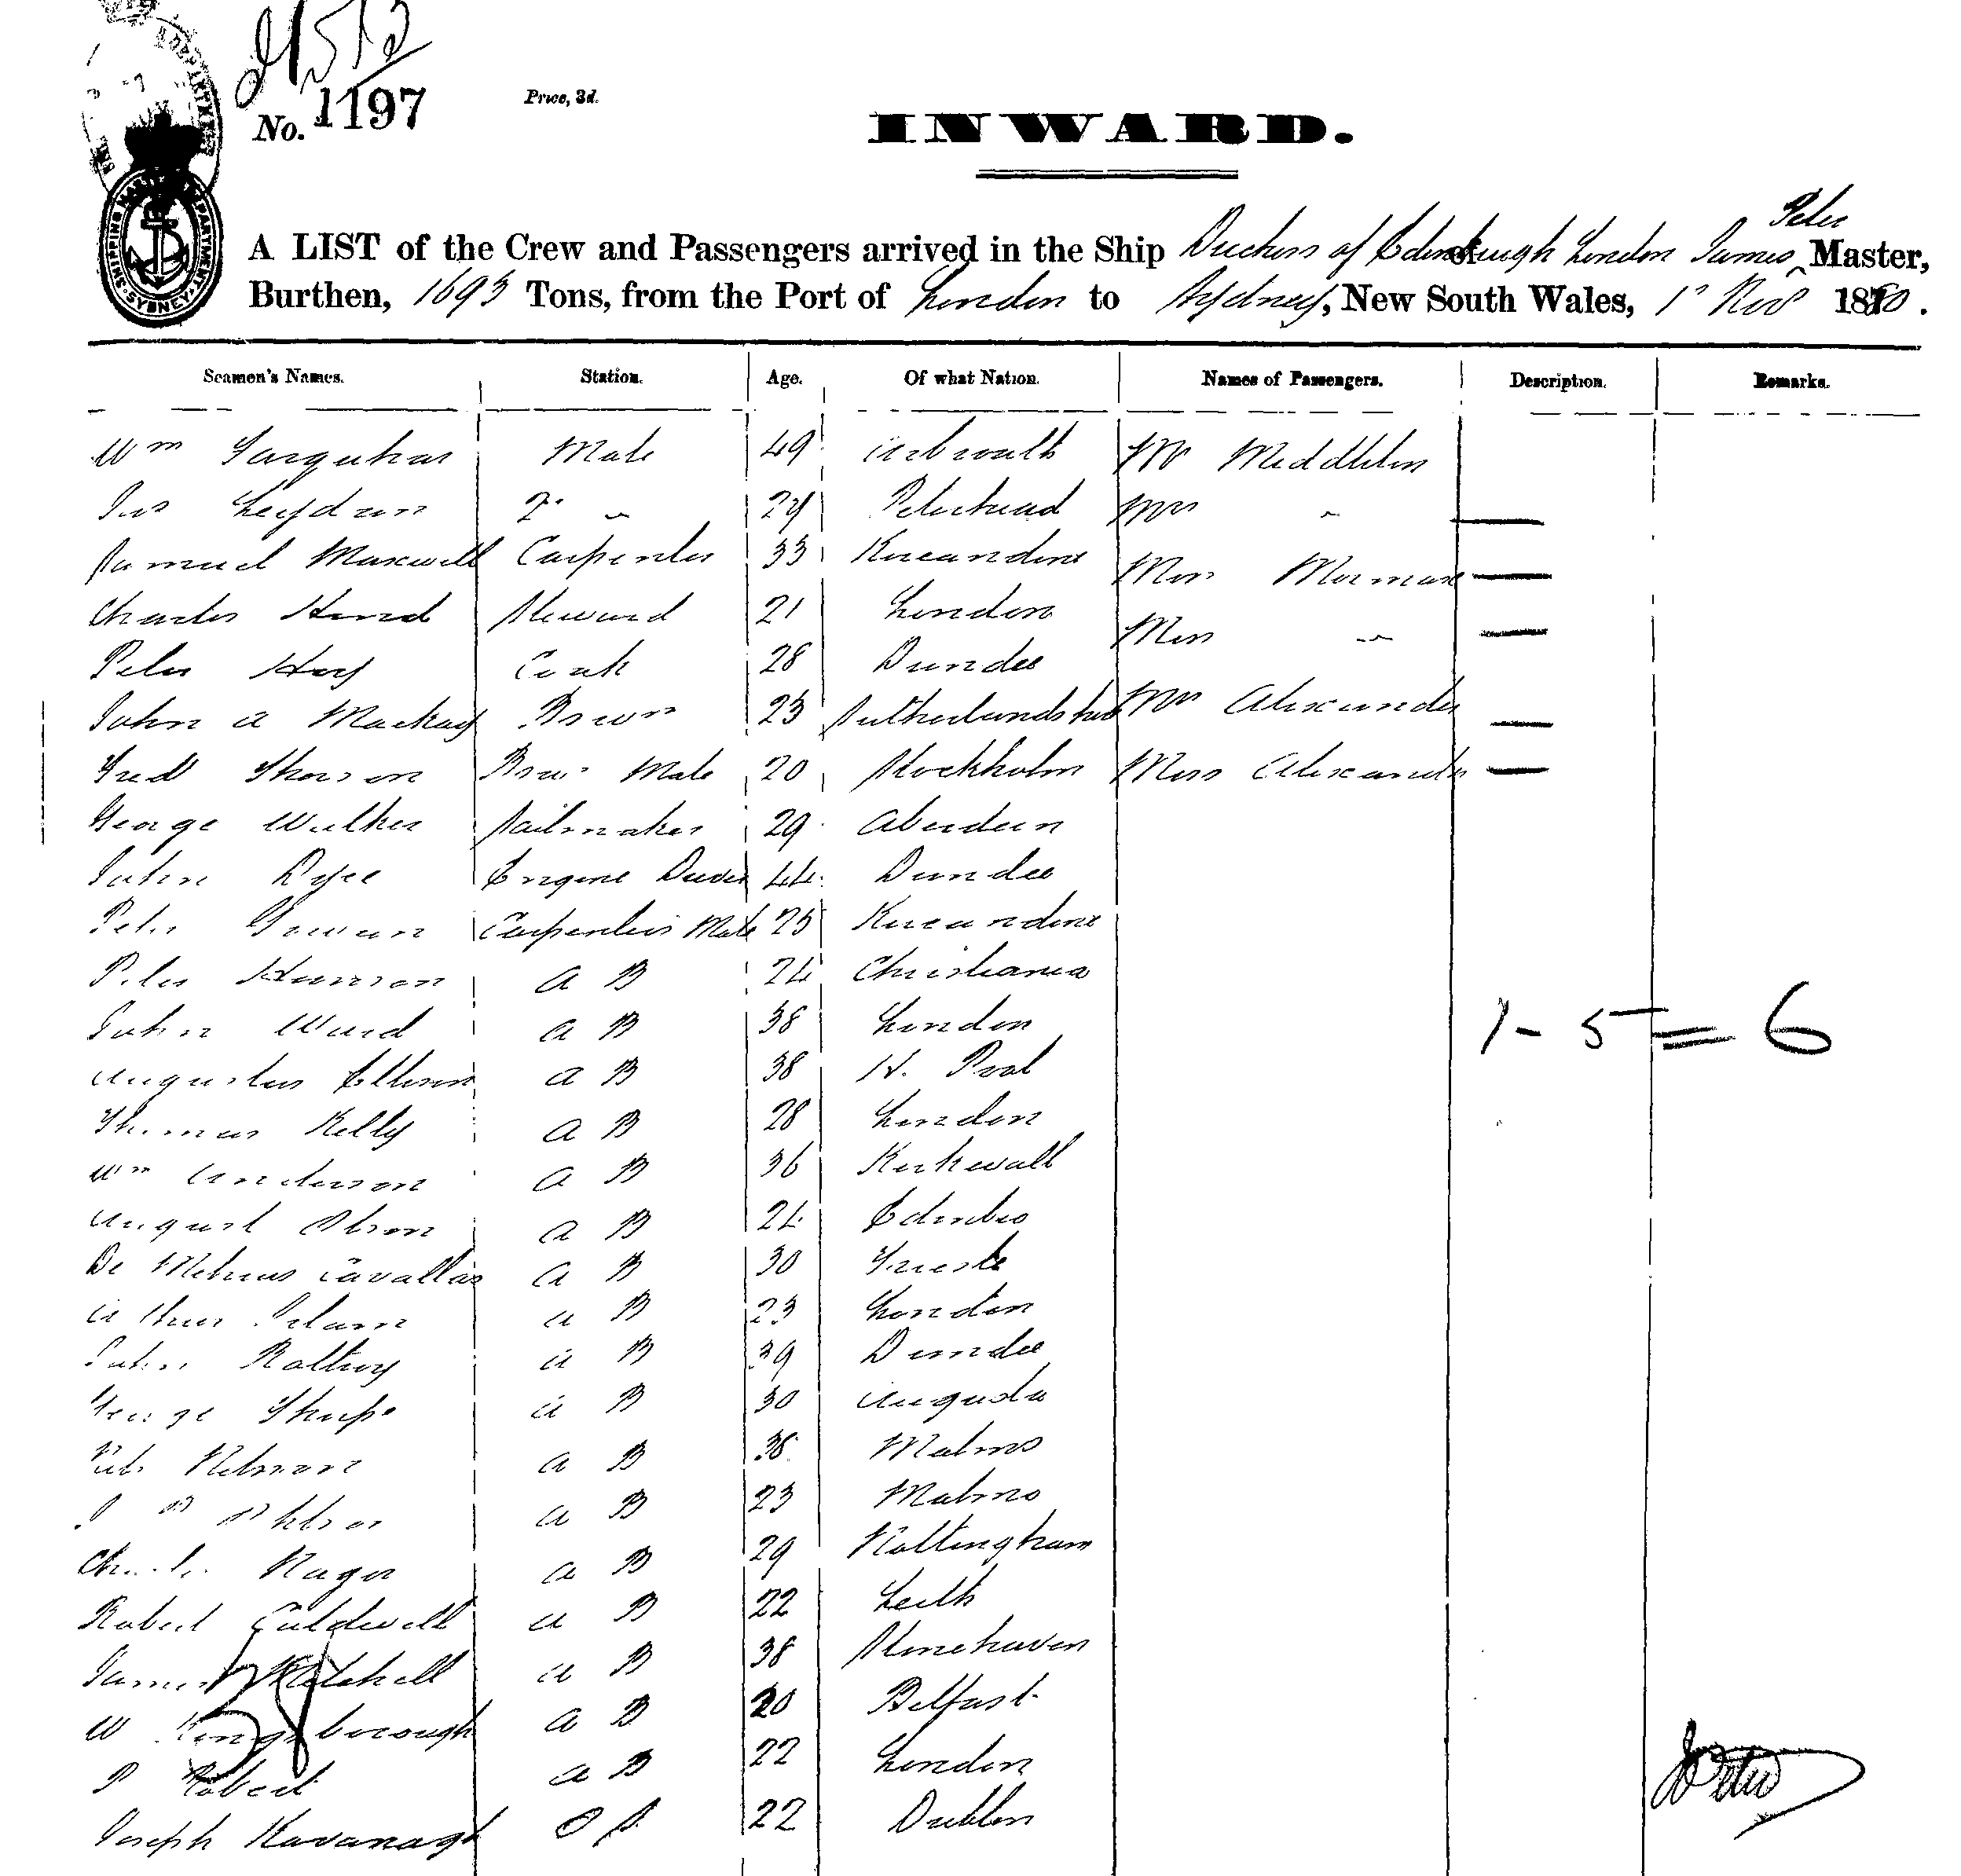 No. 1197
Price, 3d.
INWARD.
Peter
A LIST of the Crew and Passengers arrived in the Ship Duchess of Edinburgh London James Master,
Burthen, 1693 Tons, from the Port of London to Sydney, New South Wales, 1st Nov 1880.
Seamen's Names. Station. Age. Of what Nation. Names of Passengers. Description. Remarks.
Wm Farquhar Mate 49 Arbroath Mr Middleton
Jas Leydan 2d " 24 Peterhead Mrs "
Samuel Maxwell Carpenter 33 Kincardine Miss
Charles Hood Steward 21 London Miss "
Peter Hoy Cook 28 Dundee
John A Mackay Bosun 23 Sutherlandshire Mrs Alexander
Fred Thorson Bosuns Mate 20 Stockholm Miss Alexander
George Walker Sailmaker 29 Aberdeen
John Dyce Engine Driver 44 Dundee
Peter Gowan Carpenters Mate 25 Kincardine
Peter Hanson A B 24 Christiania
John Ward A B 38 London
1 - 5 = 6
Augustus A B 38 H. Pool
Thomas Kelly A B 28 London
Wm Anderson A B 36 Kirkwall
August Olson A B 24 Edinbro
De Metrius Cavallas A B 30 Trieste
Arthur A B 23 London
John Rattray A B 39 Dundee
George A B 30
A B 38 Malmo
A B 23 Malmo
A B 29 Nottingham
Robert Caldwell A B 22 Leith
James Mitchell A B 38 Stonehaven
W Kingsborough A B 20 Belfast
P Robert A B 22 London
Joseph Kavanagh O S 22 Dublin